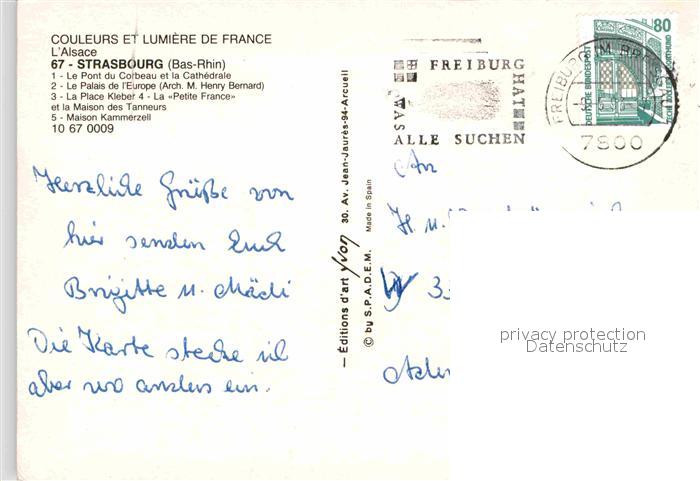 COULEURS ET LUMIÈRE DE FRANCE
L'Alsace
67 - STRASBOURG (Bas-Rhin)
1 - Le Pont du Corbeau et la Cathédrale
2 - Le Palais de l'Europe (Arch. M. Henry Bernard)
3 - La Place Kleber 4 - La «Petite France»
et la Maison des Tanneurs
5 - Maison Kammerzell
10 67 0009
Herzliche Grüße von
hier senden Euch
Brigitte u. Mädi
Die Karte stecke ich
aber wo anders ein.
— Éditions d'art yvon 30. Av. Jean-Jaurès-94-Arcueil
© by S.P.A.D.E.M. Made in Spain
FREIBURG
HAT
WAS
ALLE SUCHEN
FREIBURG IM
7800
80
DEUTSCHE BUNDESPOST
DORTMUND
An
H u.
W 33
privacy protection
Datenschutz